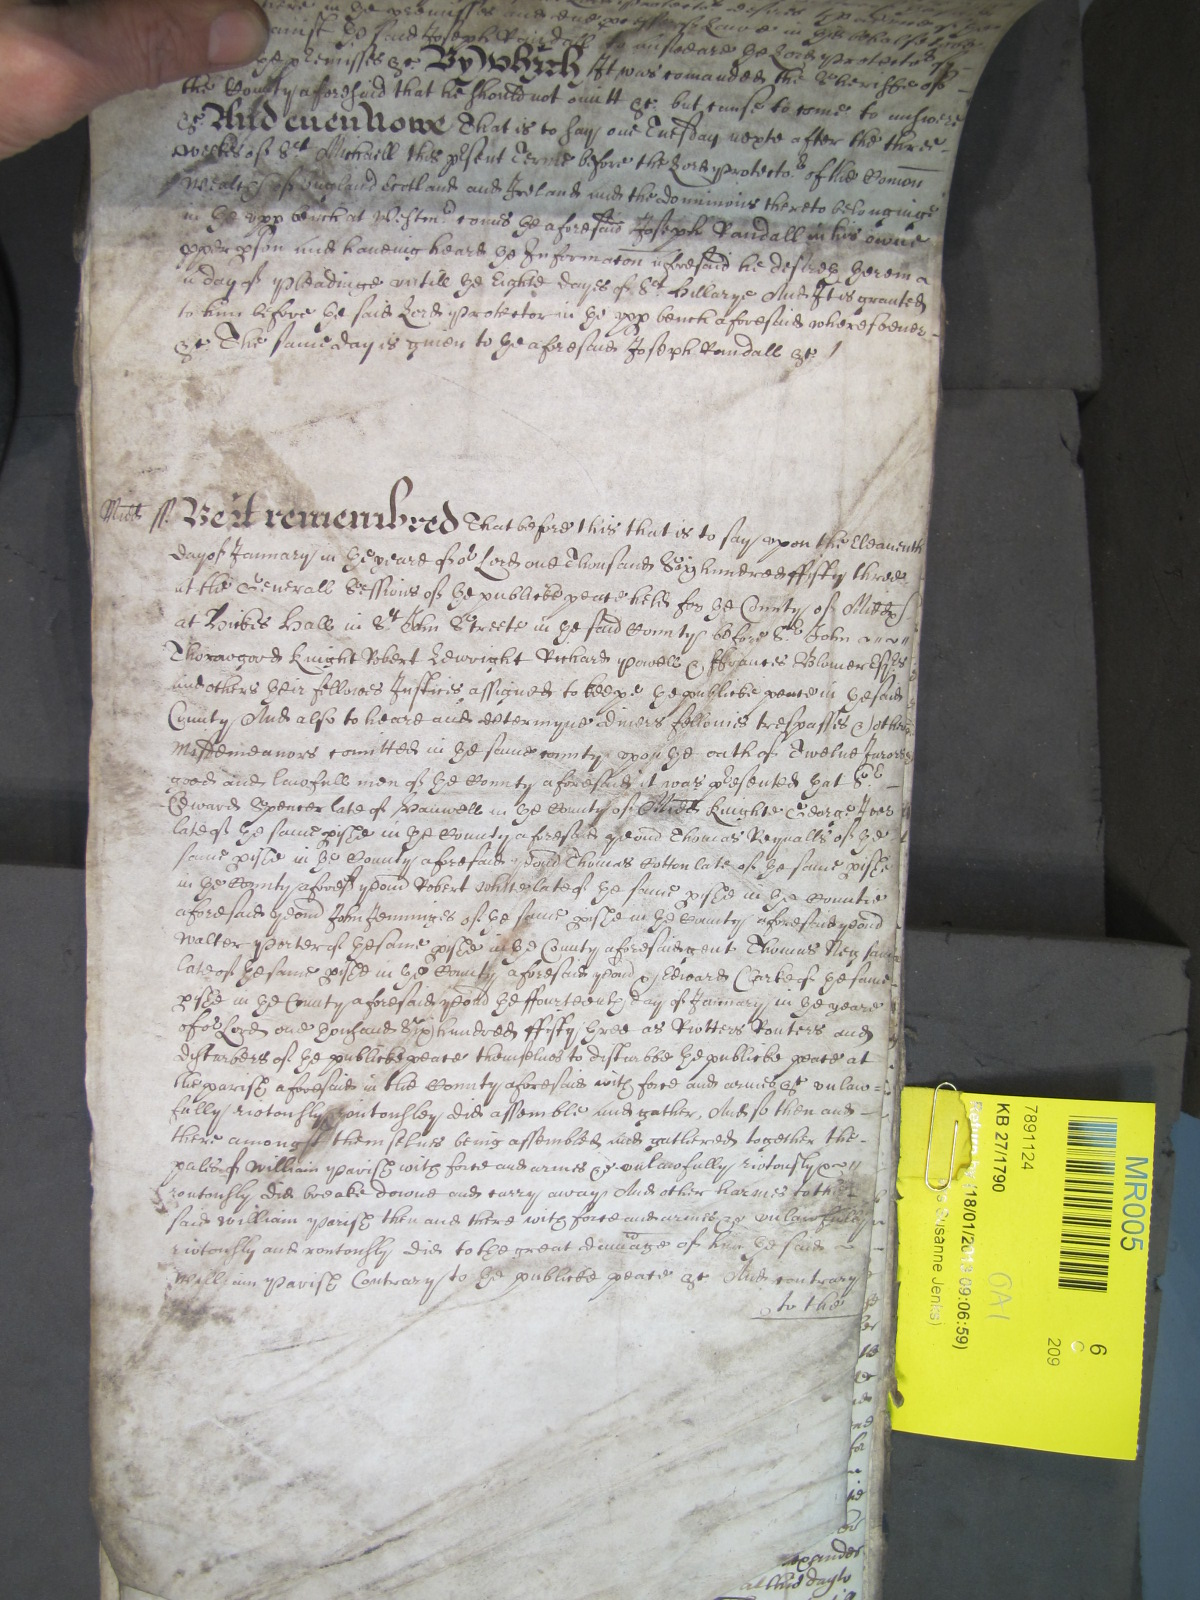 here in the premisses and
against the said Joseph Randall to answeare the Lord Protector
the premisses &c By which It was comanded the Sherriffe of
the County aforesaid that he should not omitt &c but cause to come to answere
&c And euen Nowe That is to say one Tuesday nexte after the three
weekes of St Michaell this psent Terme before the Lord Protector of the Comon
wealth of England Scotland and Ireland and the dominions thereto belonginge
in the vpp bench at Westmr comes the aforesaid Joseph Randall in his owne
pper pson and haueing heard the Informacon aforesaid he desireth herein a
a day of pleadinge vntill the Eight dayes of St Hillarye And It is granted
to him before the said Lord Protector in the vpp bench aforesaid wheresoeuer
&c The same day is giuen to the aforesaid Joseph Randall &c
Midd ss. Be it remembred That before this that is to say vpon the Eleauenth
day of January in the yeare of or Lord one Thousand Six hundred ffifty three
at the Generall Sessions of the publicke peace held for the County of Middx
at Hickes Hall in St John Streete in the said County before Sr John
Thorowgood Knight Robert Lewright Richard Powell & ffrances Blomer Esqs
and others their fellowes Justices assigned to keepe the publicke peace in the said
County And also to heare and determyne diuers fellonies trespasses & other
Misdemeanors comitted in the same county vpon the oath of Twelue Jurors
good and lawfull men of the County aforesaid it was presented that Sr
Edward Spencer late of Hanwell in the County of Midd Knight George Ives
late of the same pishe in the County aforesaid yeom Thomas Reynalls of the
same pishe in the County aforesaid yeom Thomas Cotton late of the same pishe
in the County aforesd yeom Robert White late of the same pishe in the Countie
aforesaid yeom John Jenninges of the same pishe in the County aforesaid yeom
Walter Porter of the same pishe in the County aforesaid gent Thomas
late of the same pishe in the County aforesaid yeom & Edward Clarke of the same
pishe in the County aforesaid yeom the ffourteenth day of January in the yeare
of or Lord one thousand Six hundred ffifty three as Riotters Routers and
disturbers of the publicke peace themselues to disturbe the publicke peace at
the parish aforesaid in the County aforesaid with force and armes &c vnlaw=
fully riotously & routously did assemble and gather, And so then and
there amongst themselues being assembled and gathered together the
pales of William Parish with force and armes &c vnlawfully riotously &
routously did breake downe and carry away And other harmes to the
said William Parish then and there with force and armes &c vnlawfully
riotously and routously did to the great damage of him the said
William Parish Contrary to the publicke peace &c And contrary
to the
MR005
6
C
209
7891124
KB 27/1790
(18/01/2013 09:06:59)
Susanne Jenks)